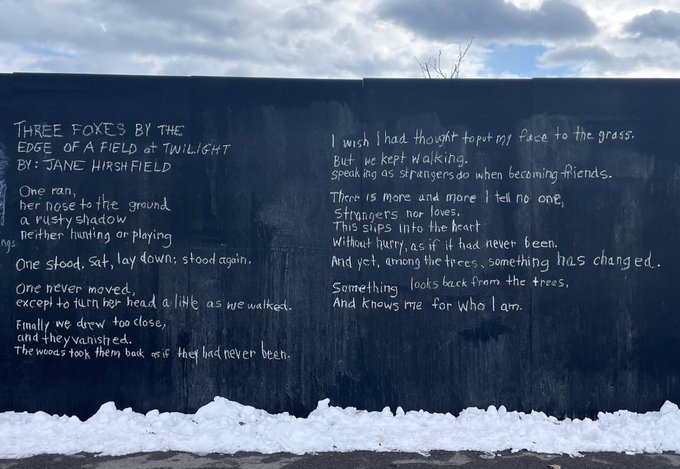 THREE FOXES BY THE
EDGE OF A FIELD at TWILIGHT
BY: JANE HIRSHFIELD
One ran,
her nose to the ground
a rusty shadow
neither hunting or playing
One stood, sat, lay down; stood again.
One never moved,
except to turn her head a little as we walked.
Finally we drew too close,
and they vanished.
The woods took them back as if they had never been.
I wish I had thought to put my face to the grass.
But we kept walking.
speaking as strangers do when becoming friends.
There is more and more I tell no one,
Strangers nor loves.
This slips into the heart
Without hurry, as if it had never been.
And yet, among the trees, something has changed.
Something looks back from the trees,
And knows me for who I am.
ngs